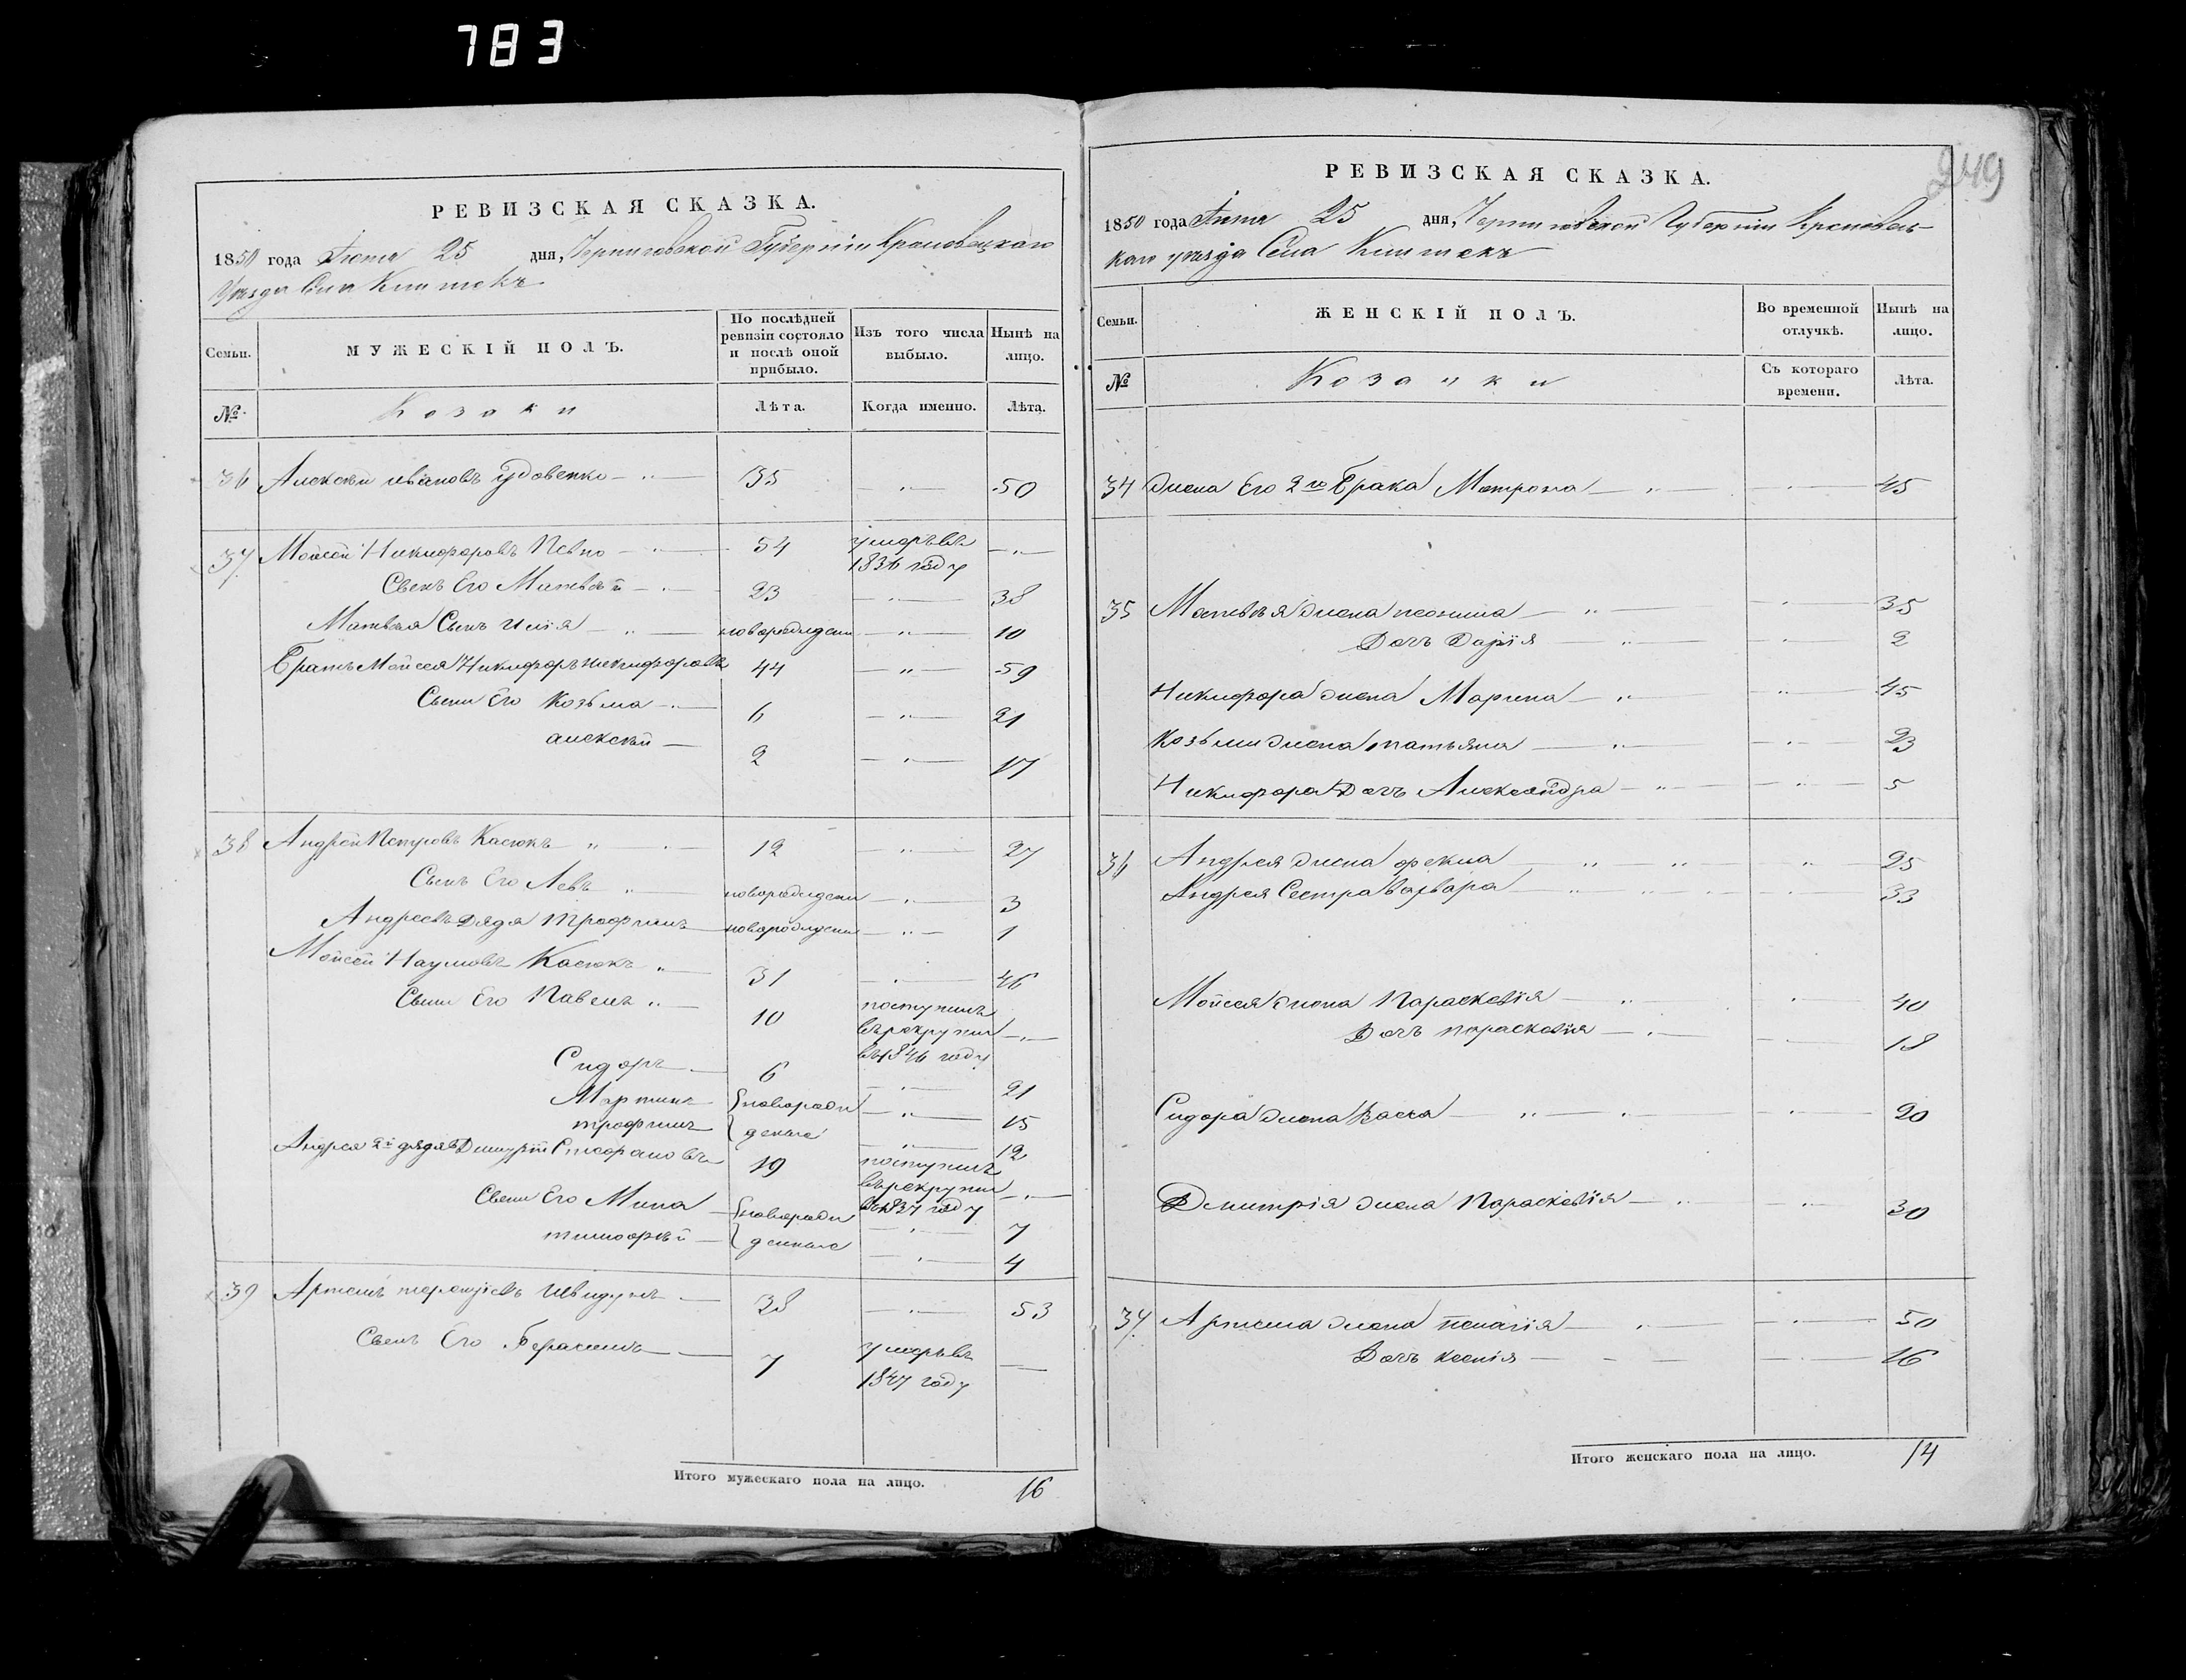 783
РЕВИЗСКАЯ СКАЗКА.
1850 года Июня 25 дня, Черниговской Губернии Кролевецкаго
Уезда Села Клишекъ
Семьи.
МУЖЕСКІЙ ПОЛЪ.
По послѣдней ревизіи состояло и послѣ оной прибыло.
Изъ того числа выбыло.
Нынѣ на лицо.
№
Козаки
Лѣта.
Когда именно.
Лѣта.
36 Алексѣй Ивановъ Удовенко — " — 35 — " — 50
37 Мойсей Никифоровъ — " — 54 умеръ въ 1836 году — " —
Сынъ Его Матвѣй — " — 23 — " — 38
Матвѣя Сынъ Илія — " — новорожден — " — 10
Братъ Мойсея Никифоръ Никифоровъ 44 — " — 59
Сыни Его Козьма — " — 6 — " — 21
алексѣй — 2 — " — 17
38 Андрей Петровъ Касюкъ " — 12 — " — 27
Сынъ Его Левъ " — новорожден — " — 3
Андреевъ Дядя Трофимъ новорожден — " — 1
Мойсей Наумовъ Касюкъ " — 31 — " — 46
Сыни Его Павелъ " — 10 поступилъ въ рекруты въ 1846 году — " —
Сидоръ — 6 — " — 21
Мартинъ новорож — " — 15
трофимъ денные — " — 12
Андрея 2й дядя Дмитрій 19 поступилъ въ рекруты въ 1837 году — " —
Сыни Его Мина — новорож — " — 7
тимофѣй — денные — " — 4
39 Артемъ Швидунъ — 38 — " — 53
Сынъ Его Герасимъ — 7 умеръ въ 1847 году —
Итого мужескаго пола на лицо. 16
249
РЕВИЗСКАЯ СКАЗКА.
1850 года Июня 25 дня, Черниговской Губерніи Кролевец-
каго уѣзда Села Клишекъ
Семьи.
ЖЕНСКІЙ ПОЛЪ.
Во временной отлучкѣ.
Нынѣ на лицо.
№
Козачки
Съ котораго времени.
Лѣта.
34 Жена Его 2го Брака Матрона — " — — " — 45
35 Матвѣя жена — " — — " — 35
Дочь Дарія — " — — " — 2
Никифора жена Марина — " — " — 45
Козьми жена татьяна — " — — " — 23
Никифора Дочь Александра — " — — " — 5
36 Андрея жена фекла — " — " — " — 25
Андрея Сестра Варвара — " — " — " — 33
Мойсея жена Параскевія — " — " — 40
Дочь параскевія — " — — " — 18
Сидора жена Васса — " — " — " — 20
Дмитрія жена Параскевія — " — " — 30
37 Артема жена пелагія — " — — " — 50
Дочь ксенія — — — " — 16
Итого женскаго пола на лицо. 14